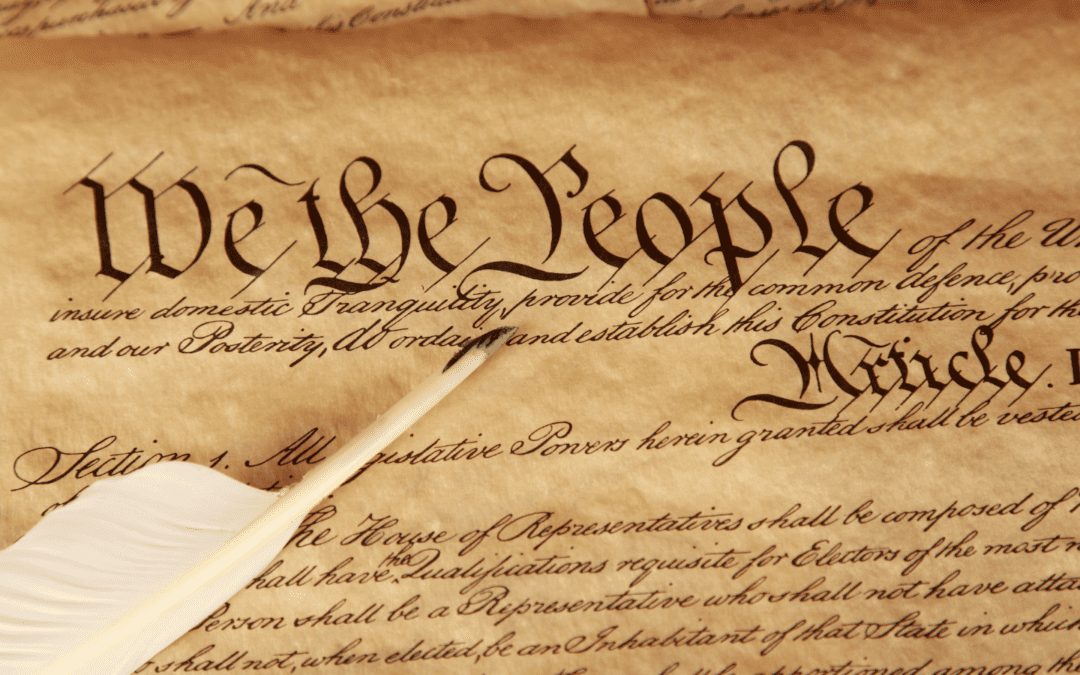 And
Constitu
We the People of the
insure domestic Tranquility, provide for the common defence, pro
and our Posterity, do ordain and establish this Constitution for the
Article. I
Section 1. All Legislative Powers herein granted shall be vested
The House of Representatives shall be composed of
shall have the Qualifications requisite for Electors of the most
Person shall be a Representative who shall not have atta
shall not, when elected, be an Inhabitant of that State in which
apportioned among the